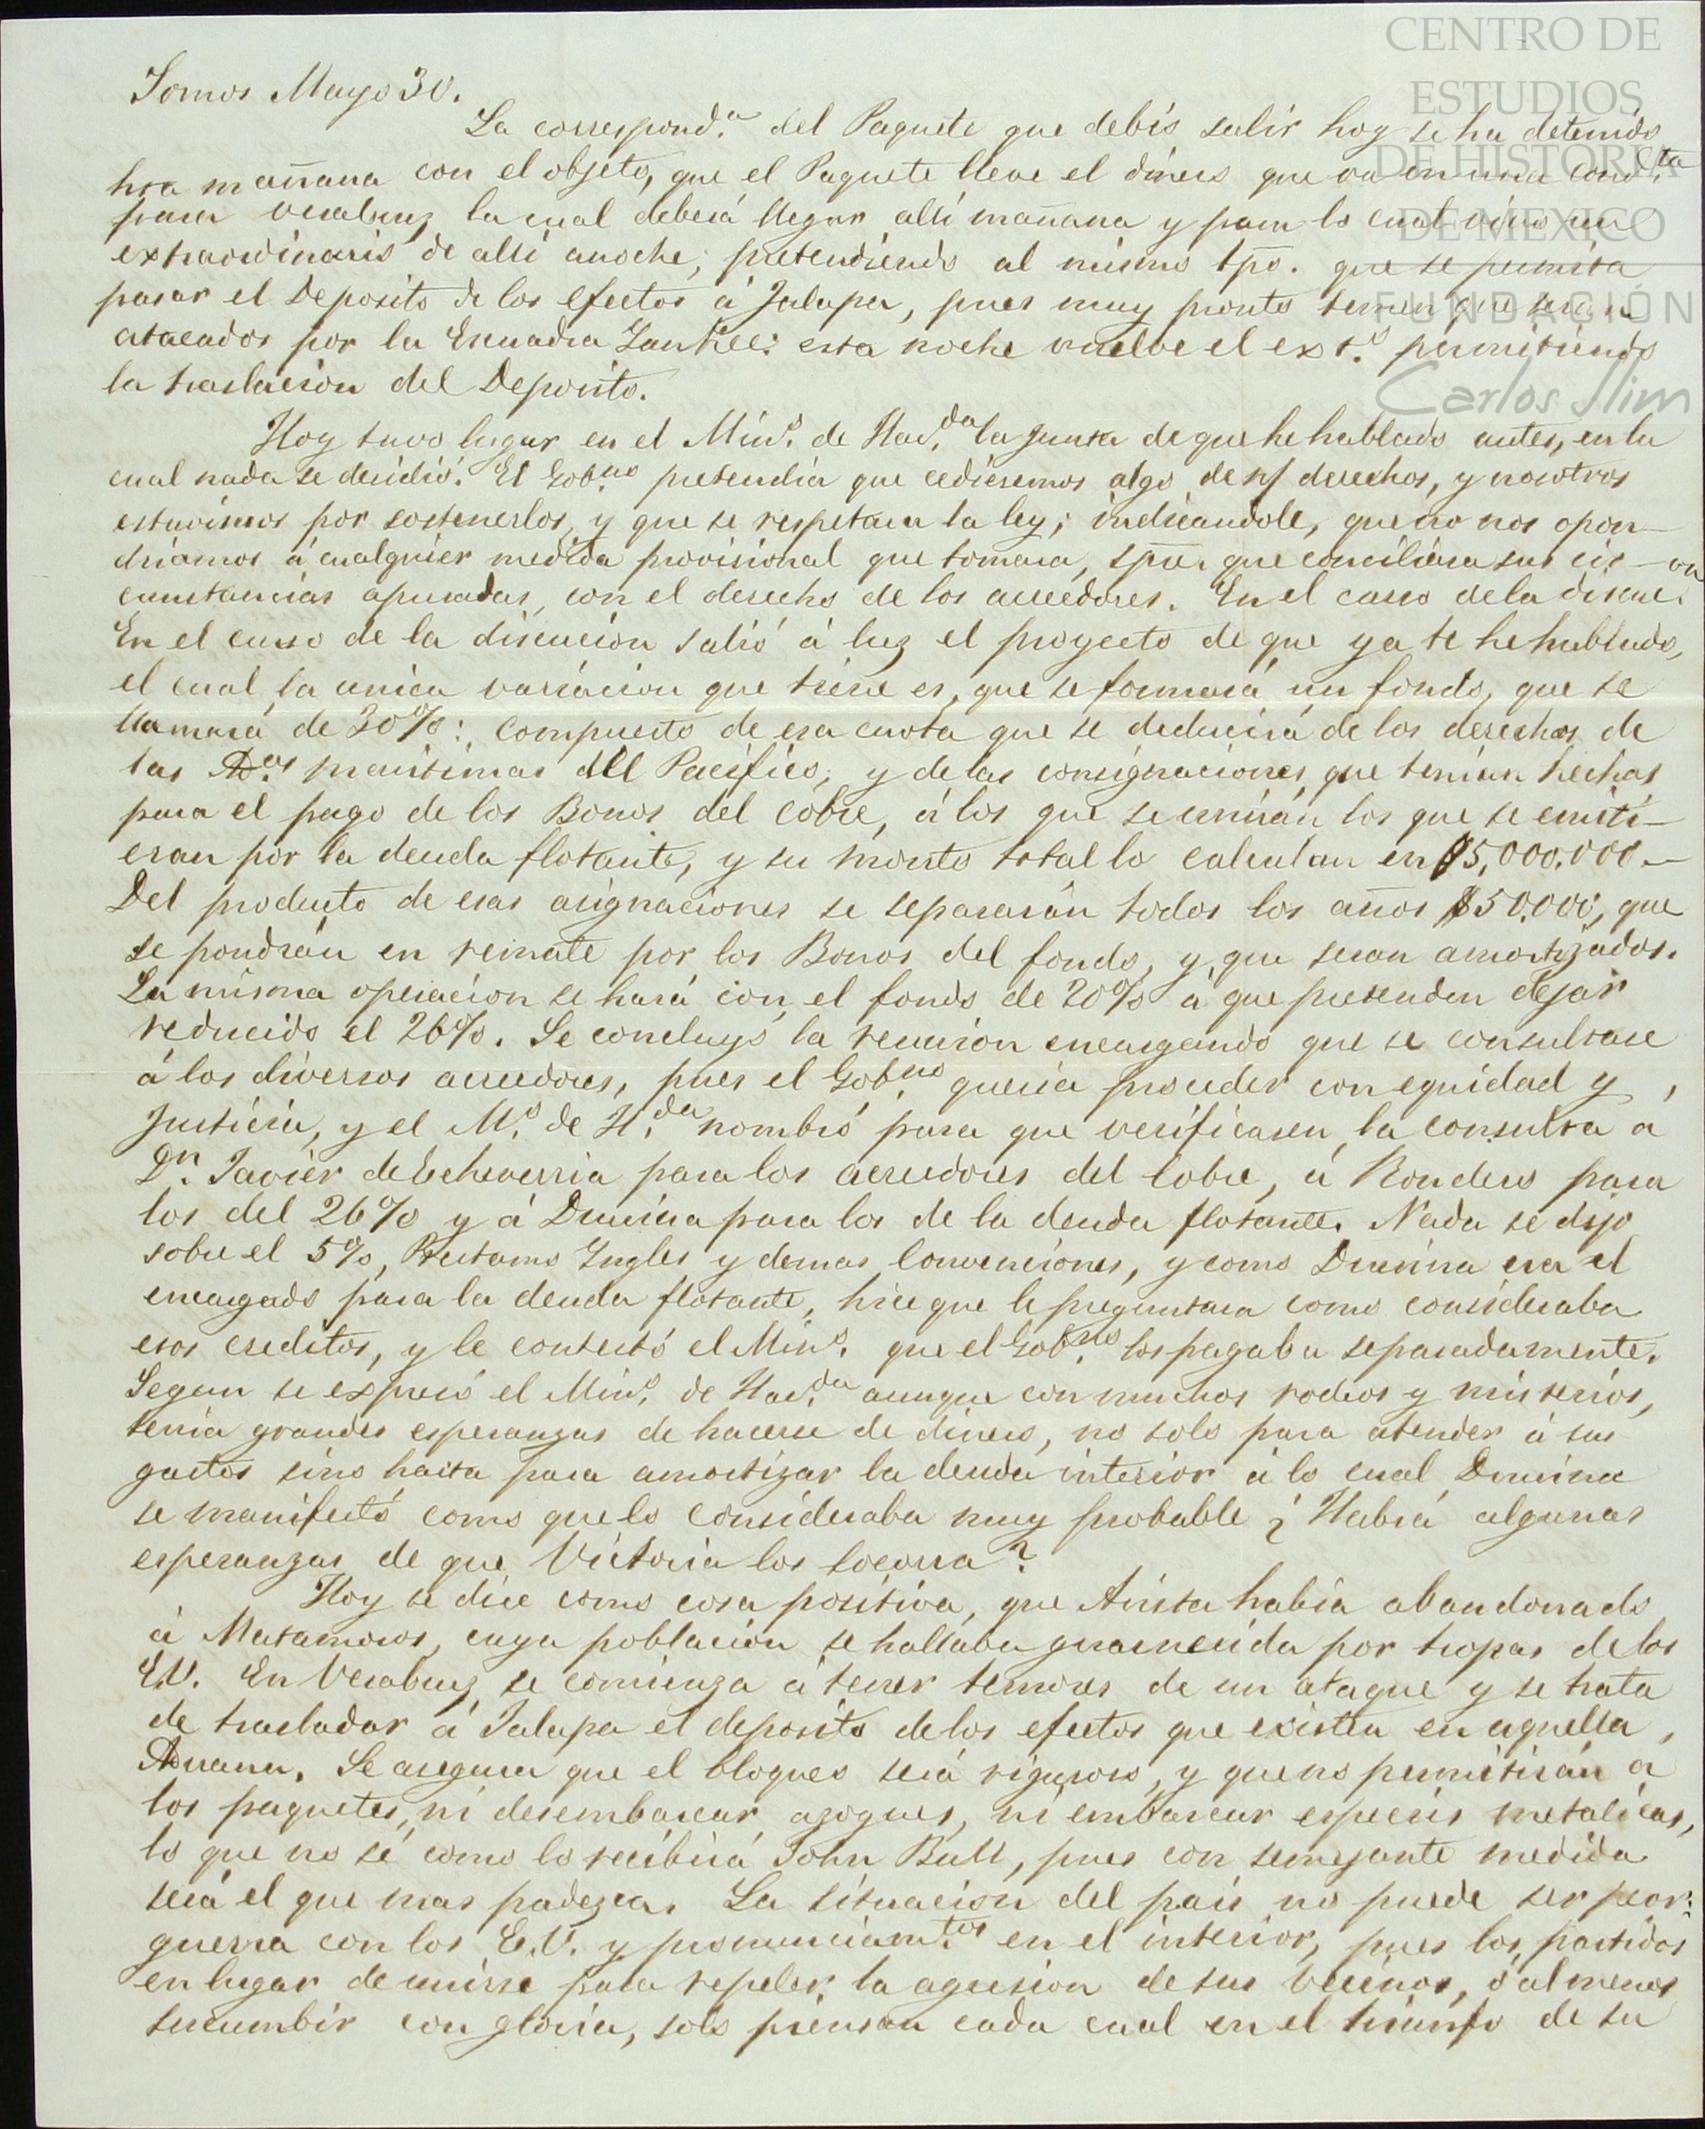 CENTRO DE
ESTUDIOS
DE HISTORIA
DE MEXICO
FUNDACIÓN
Carlos Slim
Somos Mayo 30.
La correspond.a del Paquete que debió salir hoy se ha detenido
hta mañana con el objeto, que el Paquete lleve el dinero que va en una cond.ta
para Veracruz la cual deberá llegar allí mañana y para lo cual vino un
extraordinario de allí anoche, pretendiendo al mismo tpo. que se permita
pasar el Deposito de los efectos á Jalapa, pues muy pronto temen que seran
atacados por la Escuadra Yankee: esta noche vuelve el ext.o permitiendo
la traslacion del Deposito.
Hoy tuvo lugar en el Min.o de Hac.da la Junta de que he hablado antes, en la
cual nada se decidió. El Gob.no pretendia que cediesemos algo de ns/ derechos, y nosotros
estuvimos por sostenerlos, y que se respetara la ley; indicandole, que no nos opon-
driamos á cualquier medida provisional que tomara, spre. que conciliara sus cir-
cunstancias apuradas, con el derecho de los acreedores. En el curso de la discu.on
En el curso de la discucion salió á luz el proyecto de que ya te he hablado,
el cual la unica variacion que tiene es, que se formará un fondo, que se
llamará de 30%: compuesto de esa cuota que se deducirá de los derechos de
las Ad.as maritimas del Pacifico, y de las consignaciones que tenian hechas
para el pago de los Bonos del cobre, á los que se uniran los que se emiti-
eran por la deuda flotante, y su monto total lo calculan en $5,000.000.—
Del producto de esas asignaciones se separarán todos los años $50.000, que
se pondrán en remate por los Bonos del fondo, y que seran amortizados.
La misma operacion se hará con el fondo de 20% á que pretenden dejar
reducido el 26%. Se concluyó la reunion encargando que se consultase
á los diversos acreedores, pues el Gob.no queria proceder con equidad y
Justicia, y el M.o de H.da nombró para que verificasen la consulta á
Dn. Javier de Echeverria para los acreedores del Cobre, á Rondero para
los del 26% y á Drusina para los de la deuda flotante. Nada se dijo
sobre el 5%, Prestamo Ingles y demas Convenciones, y como Drusina era el
encargado para la deuda flotante, hice que le preguntara como consideraba
esos creditos, y le contestó el Min.o que el Gob.no los pagaba separadamente.
Segun se expresó el Min.o de Hac.da aunque con muchos rodeos y misterios,
tenia grandes esperanzas de hacerse de dinero, no solo para atender á sus
gastos sino hasta para amortizar la deuda interior á lo cual Drusina
se manifestó como que lo consideraba muy probable ¿Habrá algunas
esperanzas de que Victoria los socorra?
Hoy se dice como cosa positiva, que Arista habia abandonado
á Matamoros, cuya poblacion se hallaba guarnecida por tropas de los
E.U. En Veracruz se comienza á tener temores de un ataque y se trata
de trasladar á Jalapa el deposito de los efectos que existen en aquella
Aduana. Se asegura que el bloqueo será rigoroso, y que no permitirán á
los paquetes, ni desembarcar azogues, ni embarcar especies metalicas,
lo que no sé como lo recibirá John Bull, pues con semejante medida
será el que mas padezca. La situacion del pais no puede ser peor:
guerra con los E.U. y pronunciam.tos en el interior, pues los partidos
en lugar de unirse para repeler la agresion de sus vecinos, ó al menos
sucumbir con gloria, solo piensan cada cual en el triunfo de su